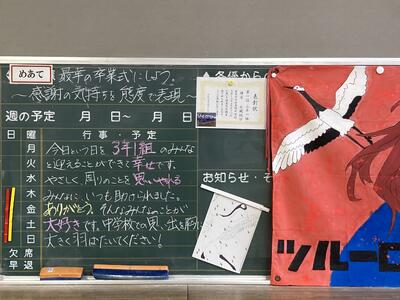 めあて
最幸の卒業式にしよう。
～感謝の気持ちを態度で表現～
週の予定 月 日～ 月 日
曜 行事・予定
日
月 今日という日を3年1組のみんな
火 と迎えることができて幸せです。
水 やさしく、周りのことを思いやれる
木 みんなに、いつも助けられました。
金 ありがとう。そんなみなのことが
土 大好きです。中学校での思い出を胸に
日 大きく羽ばたいてください!
欠席
早退
▲各係から
お知らせ・そ
表彰状
ツルーロ